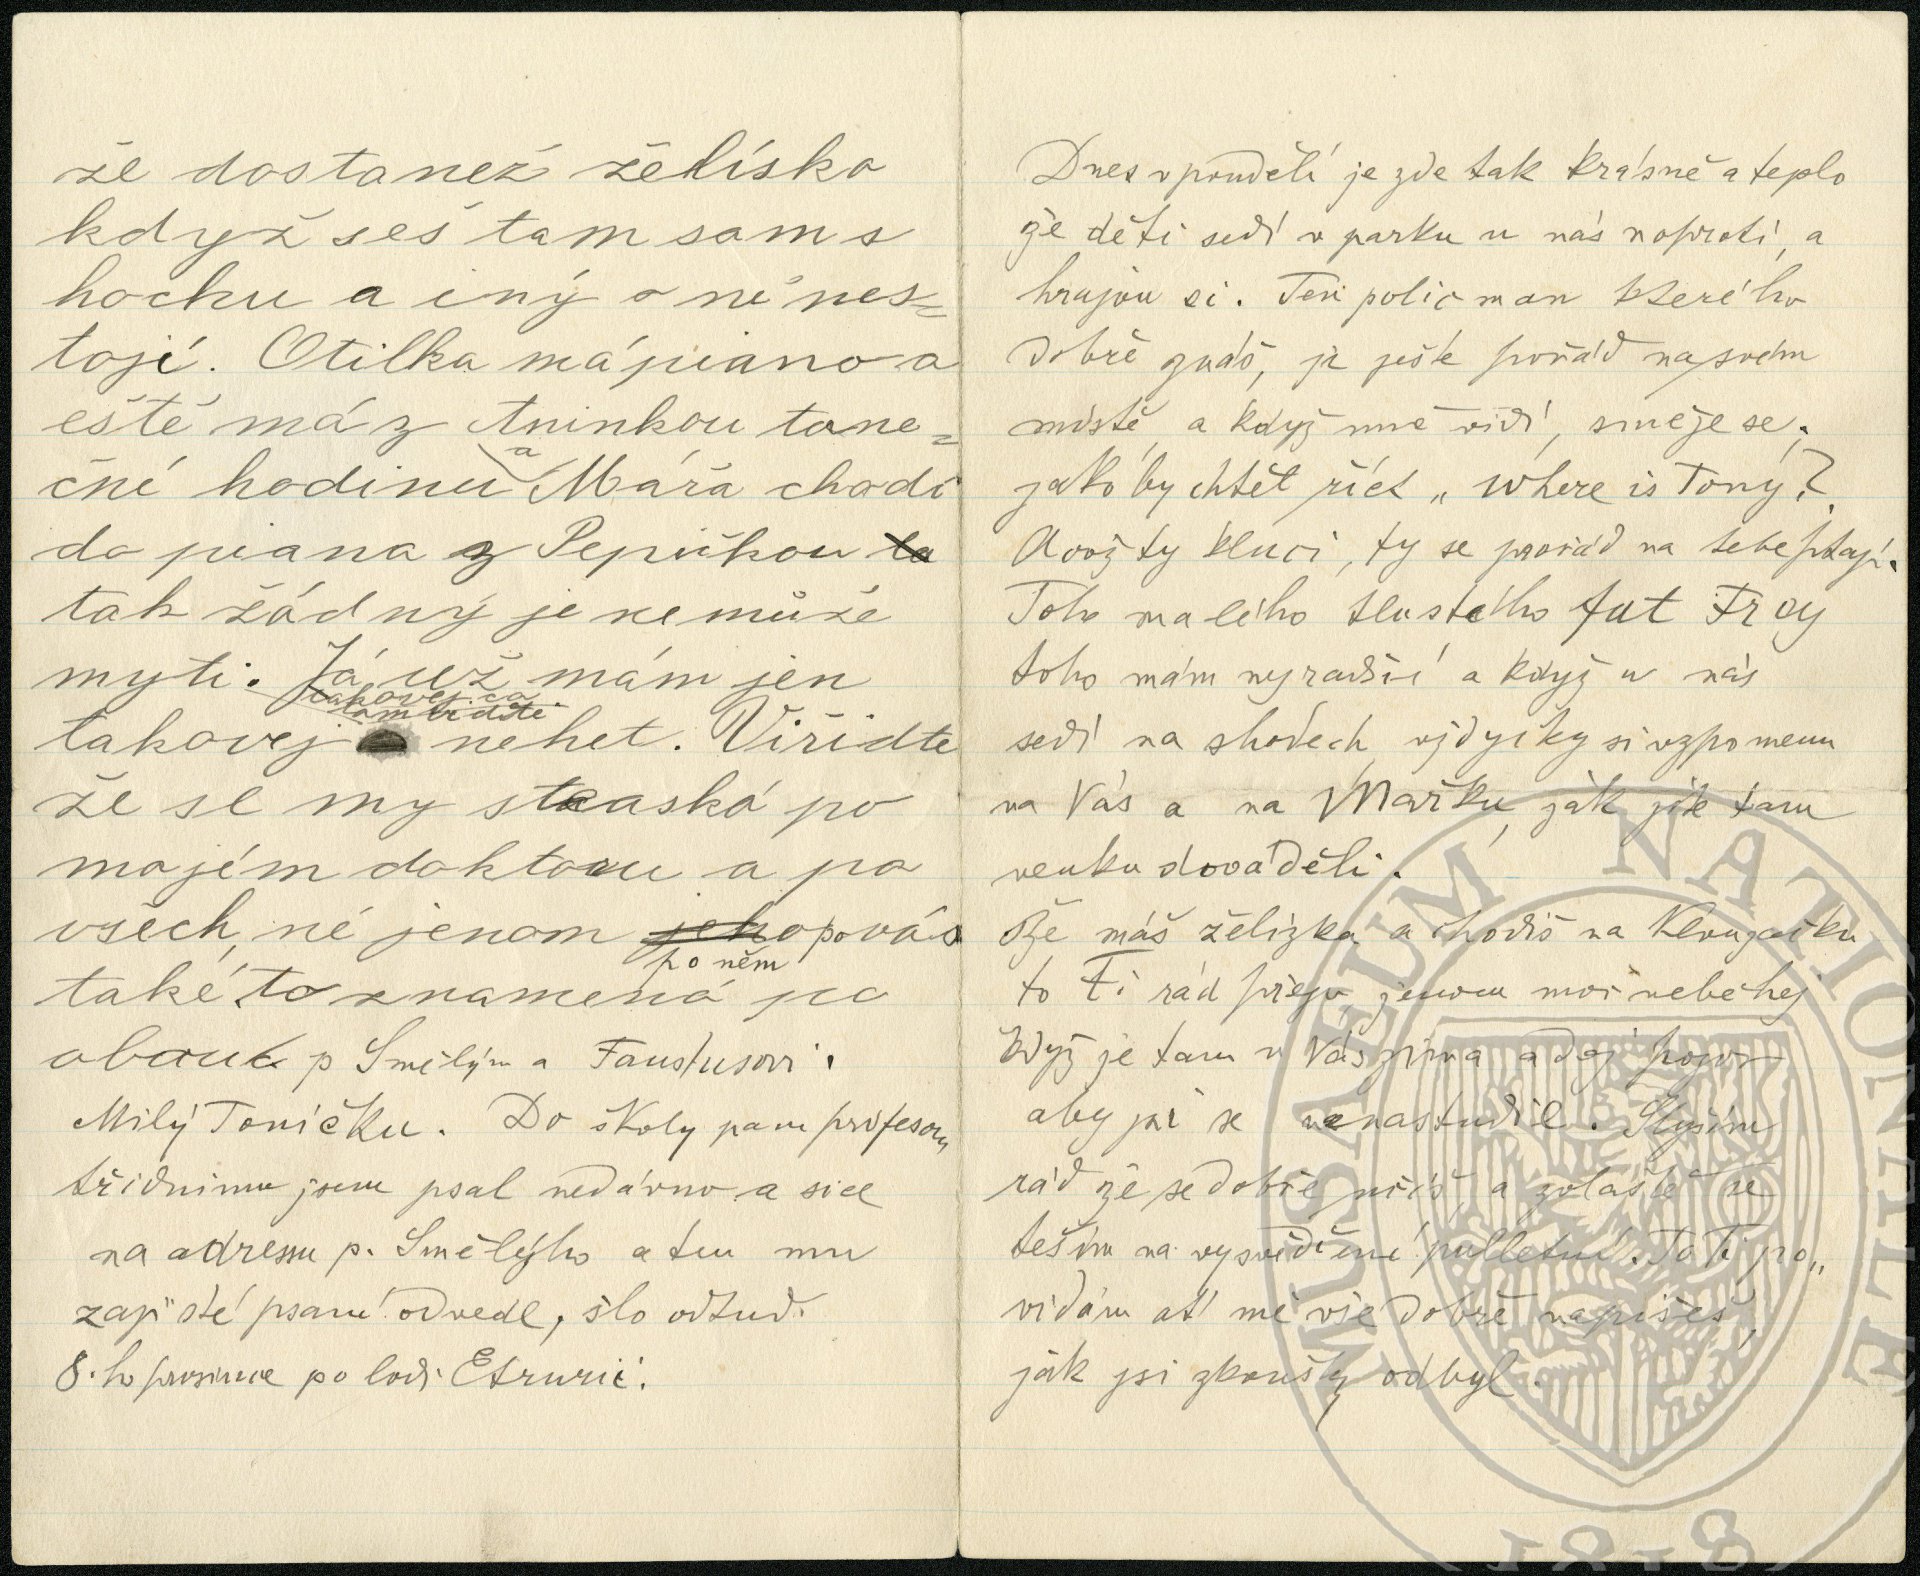 že dostaneš želísko
když seš tam sam s
hocku a iný o ně nes=
tojí. Otilka má piano a
eště má z Aninkou tane=
ční hodinu a Mářa chodí
do piana z Pepičkou ta
tak žádný je nemůže
myti. Já už mám jen
takovej nehet. Viřidte
že se my staaská po
majém doktoru a po
všech, né jenom jeho po vás
po něm
také to znamená po
obouć p Smělým a Faustusovi.
Milý Toníčku. Do školy panu profesoru
třídnimu jsem psal nedávno a sice
na adressu p. Smělýho a ten mu
zajisté psaní odvedl, šlo odtud
8.ho prosince po lodi Etrurii.
Dnes v pondělí je zde tak krásně a teplo
že děti sedí v parku u nás naproti, a
hrajou si. Ten policman kterého
dobře znáš, je ješte pořád na svém
místě, a když mně vidí, směje se,
jako by chtěl říct „ where is Tony?
A což ty kluci, ty se pořád na tebe ptají.
Toho malého tlustého fat Froy
toho mám nejradší a když u nás
sedí na shodech vždycky si vzpomenu
na Vás a na Mařku, jak jste tam
venku dováděli.
Že máš želízka a chodíš na Klouzačku
to Ti rád přeju, jenom moc neběhej
když je tam u Vás zima a dej pozor
aby jsi se nenastudil. Slyším
rád že se dobře učíš, a zvláště se
těším na vysvědčení pulletní. To Ti po„
vídám ať mě vše dobře napíšeš,
jak jsi zkoušky odbyl.
MUSAEUM NATIONALE
1818